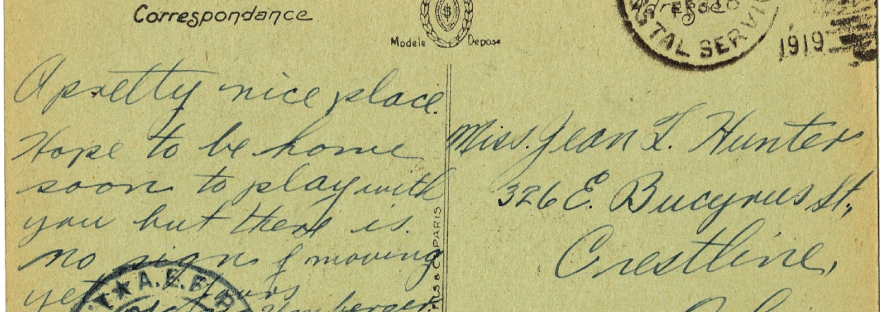 Correspondance
Modele Deposé
TAL SERVIC
1919
A pretty nice place.
Hope to be home
soon to play with
you but there is
no sign of moving
yet
Miss. Jean L. Hunter
326 E. Bucyrus St.,
Crestline,
& C. PARIS
★ A.E.F.